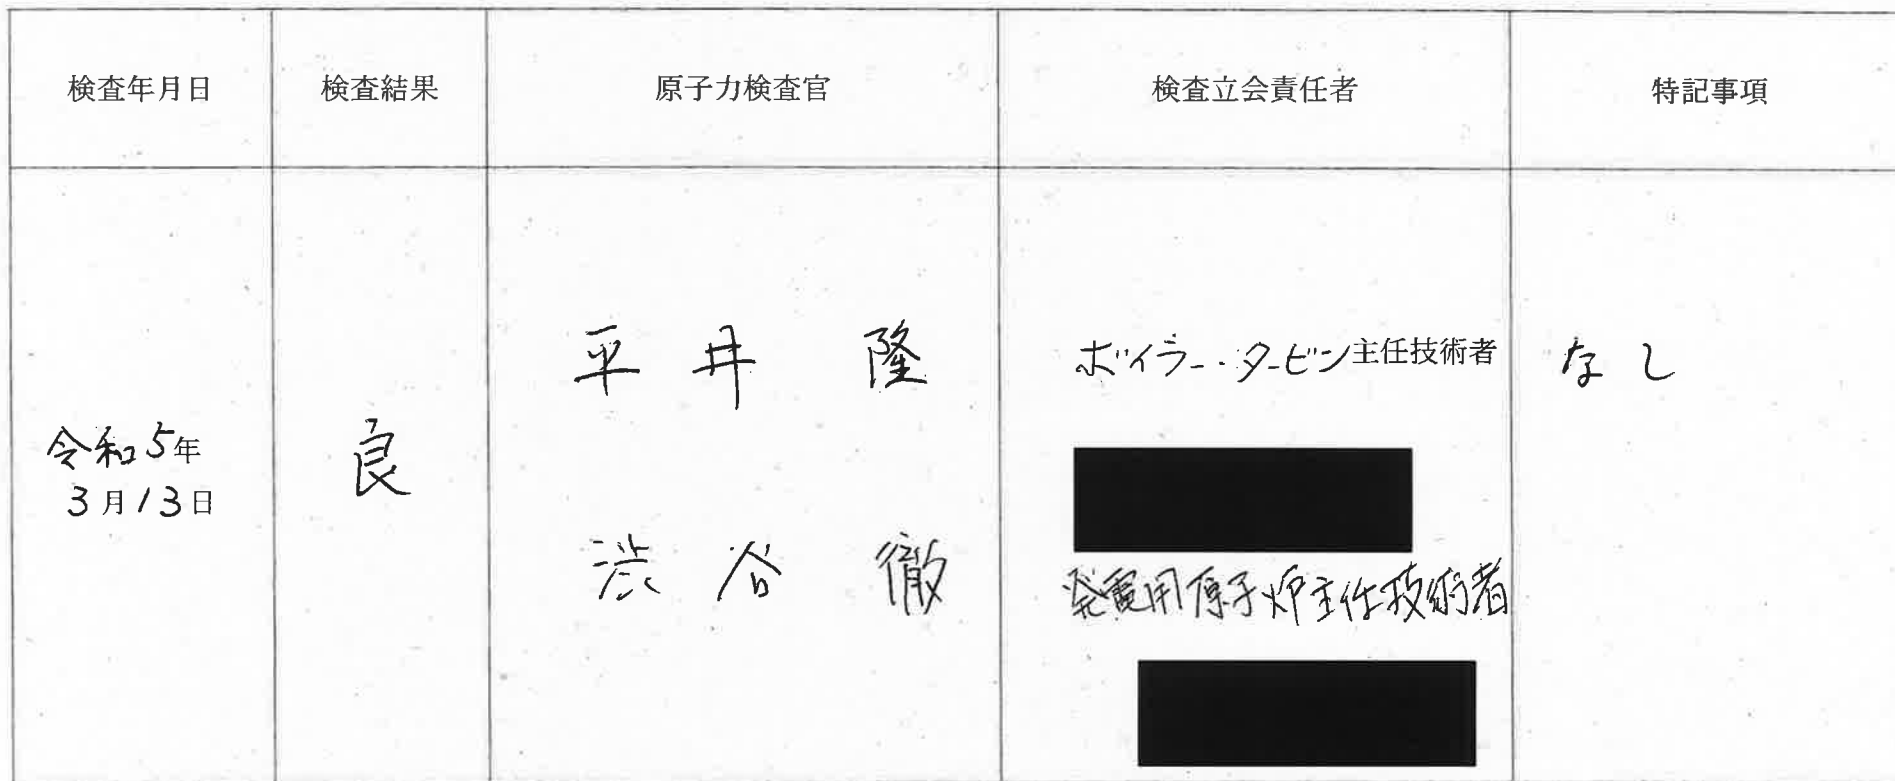 検査年月日
検査結果
原子力検査官
検査立会責任者
特記事項
令和5年
3月13日
良
平井 隆
渋谷 徹
ボイラー・タービン主任技術者
発電用原子炉主任技術者
なし